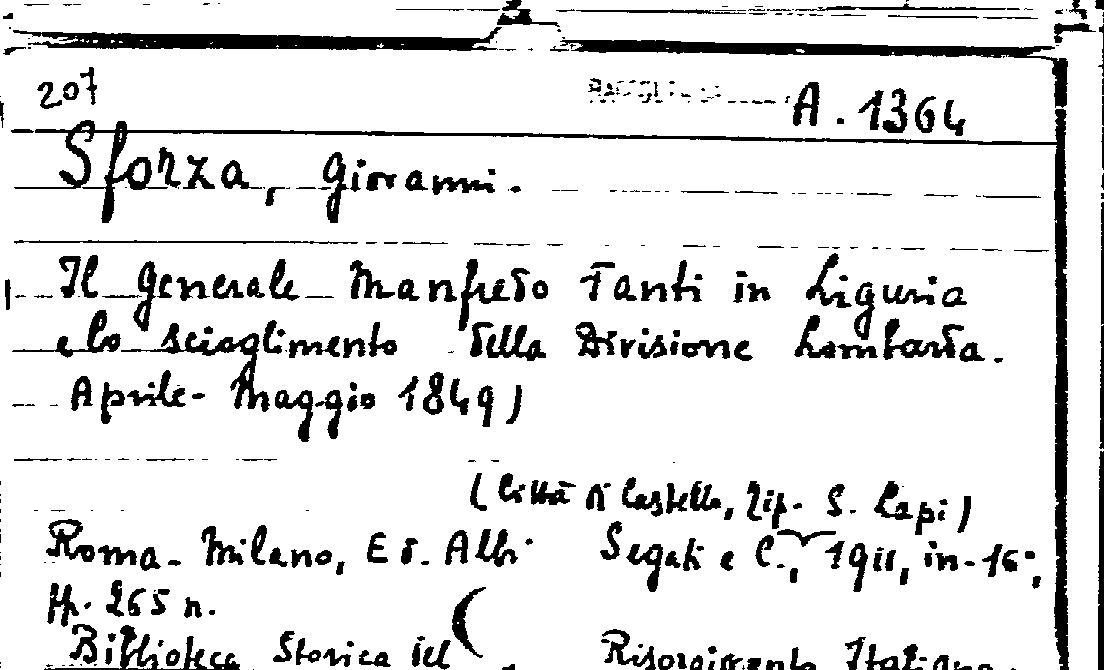 207
A. 1364
Sforza, Giovanni.
Il Generale Manfredo Fanti in Liguria
e lo scioglimento della Divisione Lombarda.
Aprile-Maggio 1849)
(Città di Castello, Tip. S. Lapi)
Roma-Milano, Ed. Albri Segati e C., 1911, in-16°,
pp. 265 n.
Biblioteca Storica del Risorgimento Italiano.